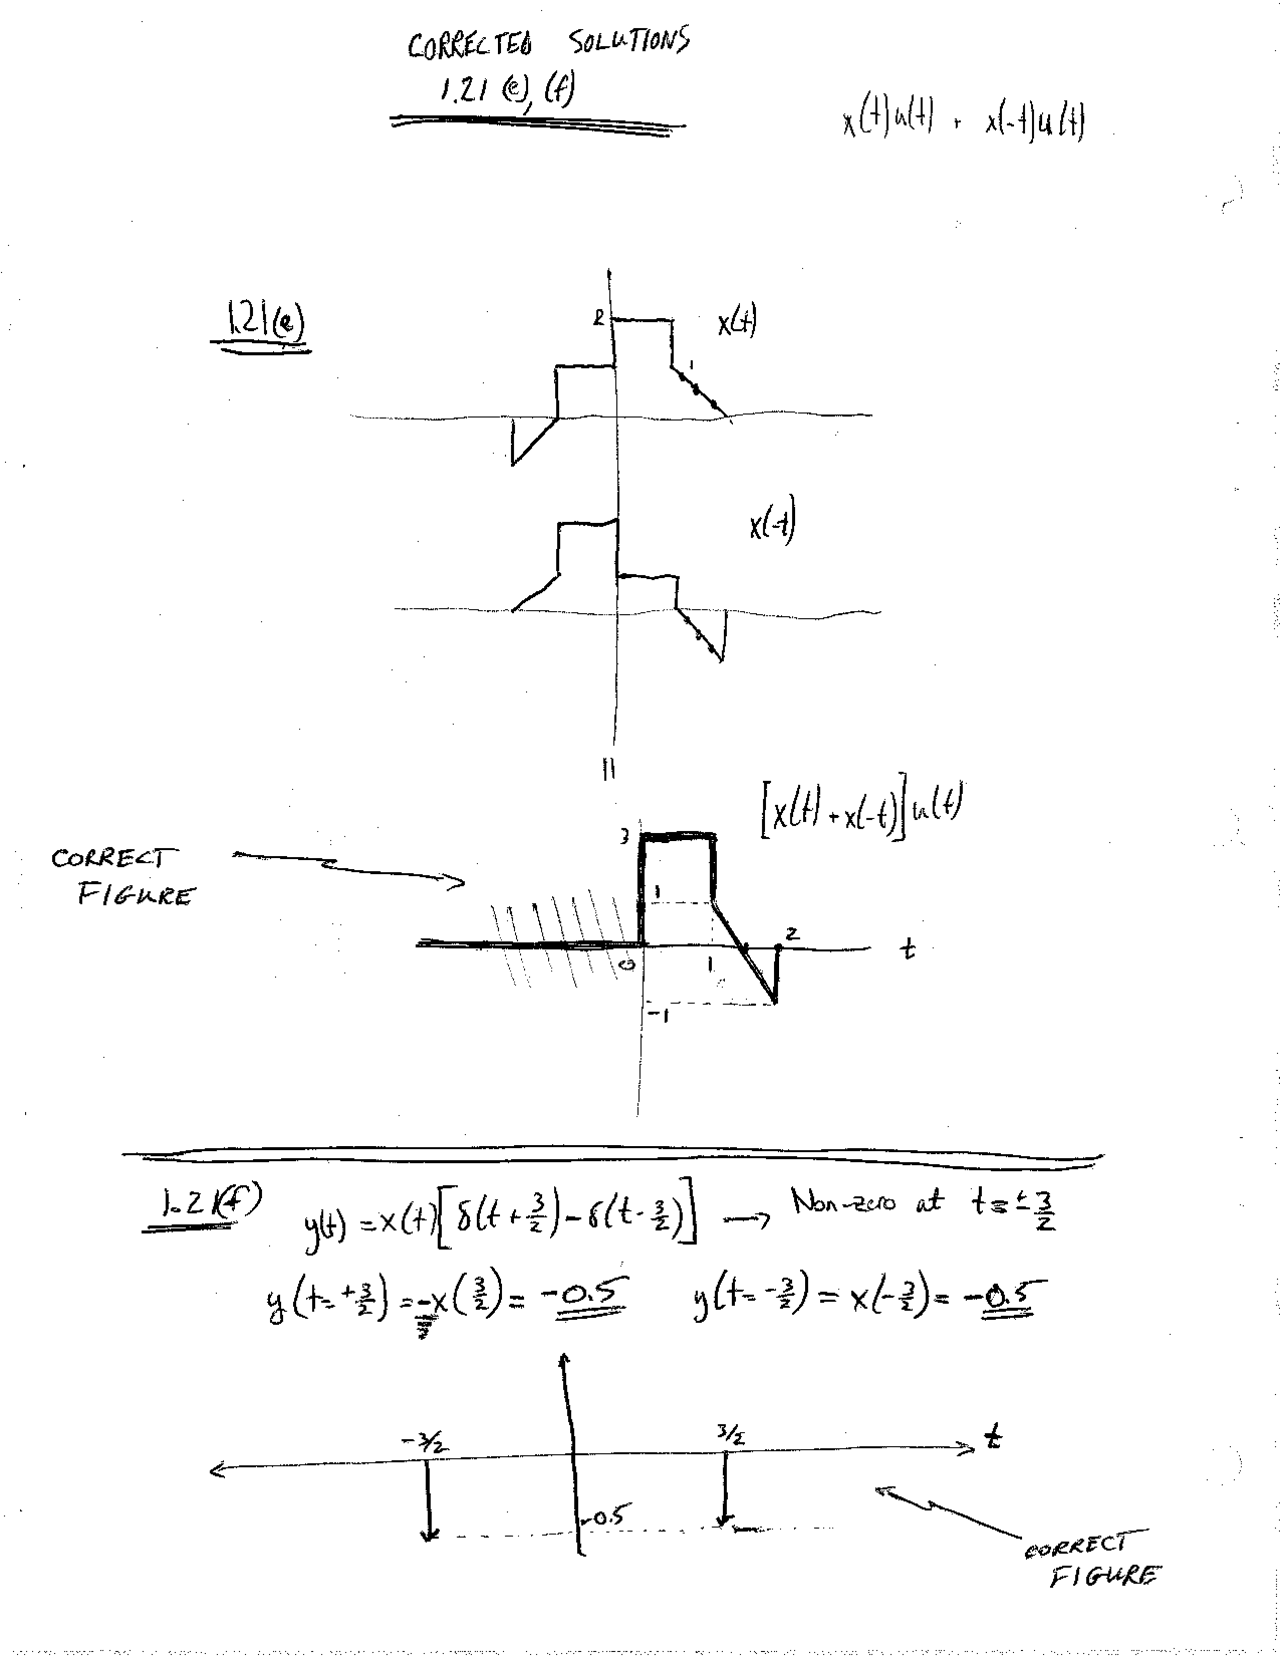 CORRECTED SOLUTIONS
1.21 (e), (f)
x(t)u(t) + x(-t)u(t)
1.21(e)
2
x(t)
1
x(-t)
=
[x(t) + x(-t)]u(t)
3
CORRECT
FIGURE
1
2
0
1
t
-1
1.21(f)
y(t) = x(t)[δ(t + 3/2) - δ(t - 3/2)] → Non-zero at t = ± 3/2
y(t = +3/2) = -x(3/2) = -0.5 y(t = -3/2) = x(-3/2) = -0.5
-3/2
3/2
t
-0.5
CORRECT
FIGURE